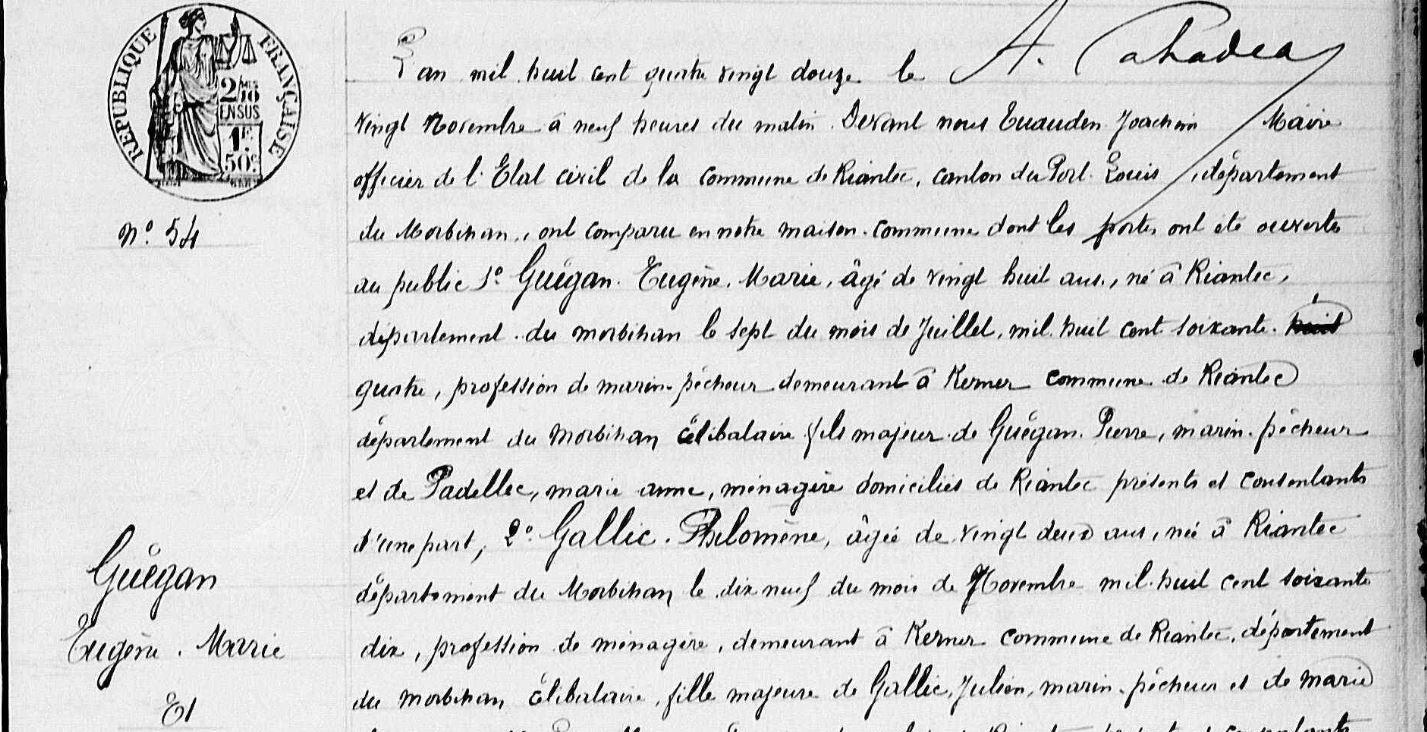 RÉPUBLIQUE FRANÇAISE
2/10
EN SUS
1F.
50c.
N.º 54
L'an mil huit cent quatre vingt douze le
vingt Novembre à neuf heures du matin. Devant nous Joachim Maire
officier de l'Etat civil de la commune de Riantec, canton du Port-Louis, département
du Morbihan, ont comparu en notre maison commune dont les portes ont été ouvertes
au public 1º Guégan Eugène, Marie, âgé de vingt huit ans, né à Riantec,
département du morbihan le sept du mois de Juillet, mil huit cent soixante huit
quatre, profession de marin-pêcheur demeurant à Kerner commune de Riantec
département du Morbihan célibataire fils majeur de Guégan Pierre, marin-pêcheur
et de Padellec, marie anne, ménagère domiciliés de Riantec présents et consentants
d'une part, 2º Gallic Philomène, âgée de vingt deux ans, née à Riantec
département du Morbihan le dix neuf du mois de Novembre mil huit cent soixante
dix, profession de ménagère, demeurant à Kerner commune de Riantec, département
du Morbihan célibataire, fille majeure de Gallic, Julien, marin-pêcheur et de marie
Guégan
Eugène Marie
Et